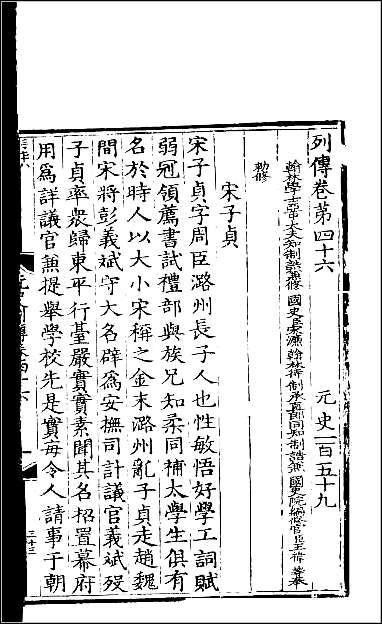 列傳卷第四十六　元史一百五十九
翰林學士亞中大夫知制誥兼修國史臣宋濂翰林待制承直郎同知制誥兼國史院編修官臣王禕等奉
勑修
宋子貞
宋子貞字周臣潞州長子人也性敏悟好學工詞賦
弱冠領薦書試禮部與族兄知柔同補太學生俱有
名於時人以大小宋稱之金末潞州亂子貞走趙魏
間宋將彭義斌守大名辟爲安撫司計議官義斌歿
子貞率衆歸東平行臺嚴實實素聞其名招置幕府
用爲詳議官兼提舉學校先是實每令人請事于朝